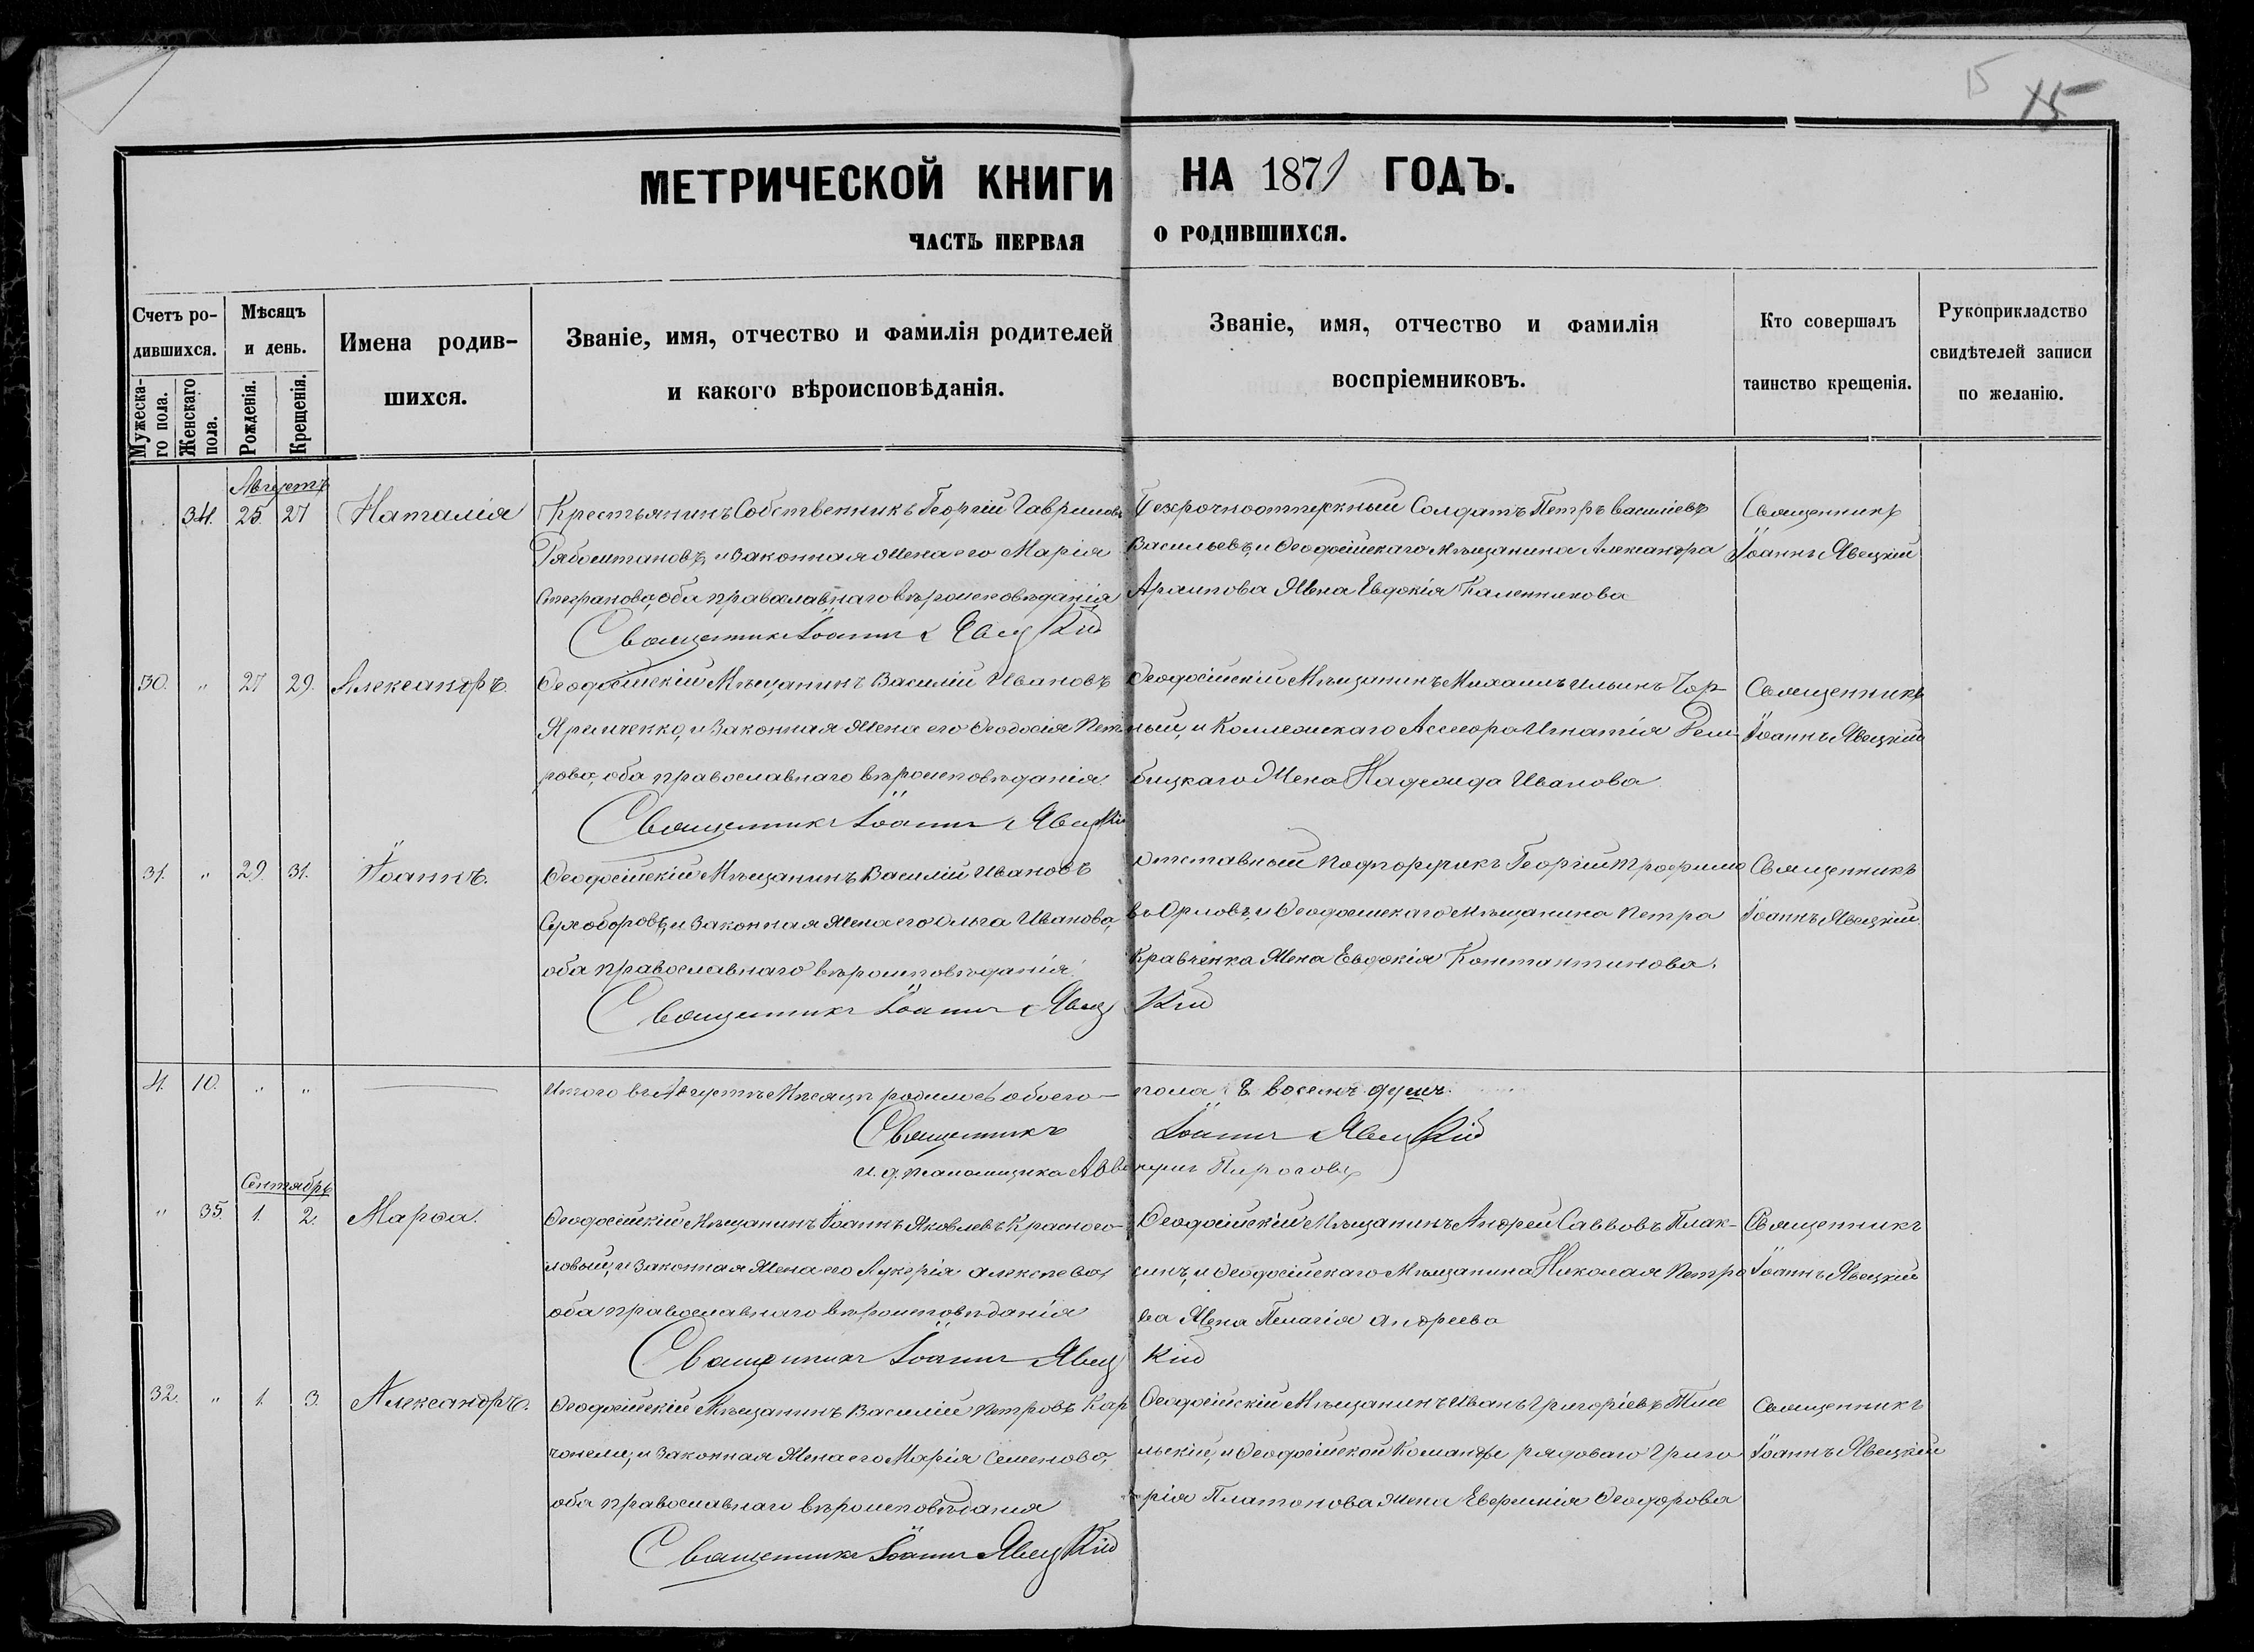 15
15
МЕТРИЧЕСКОЙ КНИГИ НА 1871 ГОДЪ.
ЧАСТЬ ПЕРВАЯ О РОДИВШИХСЯ.
Счетъ родившихся.
Мужеска-го пола.
Женскаго пола.
Мѣсяцъ и день.
Рожденія.
Крещенія.
Имена родив-
шихся.
Званіе, имя, отчество и фамилія родителей
и какого вѣроисповѣданія.
Званіе, имя, отчество и фамилія
воспріемниковъ.
Кто совершалъ
таинство крещенія.
Рукоприкладство
свидѣтелей записи
по желанію.
Августъ
34. 25. 27 Наталія
Крестьянинъ Собственникъ Георгій Гавриловъ
Рябоштановъ, и законная жена его Марія
Стефанова, оба православнаго вѣроисповѣданія
Священникъ Іоаннъ Явецкій
Безсрочноотпускный Солдатъ Петръ Василіевъ
Васильевъ, и Ѳеодосійскаго Мѣщанина Александра
Жена Евдокія
Священникъ
Іоаннъ Явецкій
30. " 27 29. Александръ.
Ѳеодосійскій Мѣщанинъ Василій Ивановъ
Яремченко, и Законная Жена его Ѳеодосія Пет-
рова, оба православнаго вѣроисповѣданія.
Священникъ Іоаннъ Явецкій
Ѳеодосійскій Мѣщанинъ Михаилъ Ильинъ Чор-
ный, и Коллежскаго Ассесора Игнатія Рем-
бицкаго Жена Надежда Иванова
Священникъ
Іоаннъ Явецкій
31. " 29. 31. Іоаннъ.
Ѳеодосійскій Мѣщанинъ Василій Ивановъ
Сухоборовъ, и Законная Жена его Ольга Иванова,
оба православнаго вѣроисповѣданія.
Священникъ Іоаннъ Явецкій
Отставный Подпоручикъ Георгій Трофимо
въ Орловъ, и Ѳеодосійскаго Мѣщанина Петра
Кравченка Жена Евдокія Константинова.
Священникъ
Іоаннъ Явецкій.
4. 10. " "
Итого въ Августѣ Мѣсяцѣ родилось обоего
пола восемь душъ.
Священникъ Іоаннъ Явецкій
и. д. псаломщика Пироговъ
Сентябрь
" 35. 1. 2. Марѳа.
Ѳеодосійскій Мѣщанинъ Іоаннъ Яковлевъ Красного-
ловый, и Законная Жена его Лукерія Алексѣева,
оба православнаго вѣроисповѣданія
Священникъ Іоаннъ Явецкій
Ѳеодосійскій Мѣщанинъ Андрей Саввовъ Плак-
синъ, и Ѳеодосійскаго Мѣщанина Николая Петро
ва Жена Пелагія Андреева
Священникъ
Іоаннъ Явецкій
32. " 1. 3. Александръ.
Ѳеодосійскій Мѣщанинъ Василій Петровъ Кар
и Законная Жена его Марія Семенова,
оба православнаго вѣроисповѣданія
Священникъ Іоаннъ Явецкій
Ѳеодосійскій Мѣщанинъ Иванъ Григоріевъ
и Ѳеодосійской Команды рядоваго Григо
рія Платонова Жена Евфимія Ѳеодорова
Священникъ
Іоаннъ Явецкій